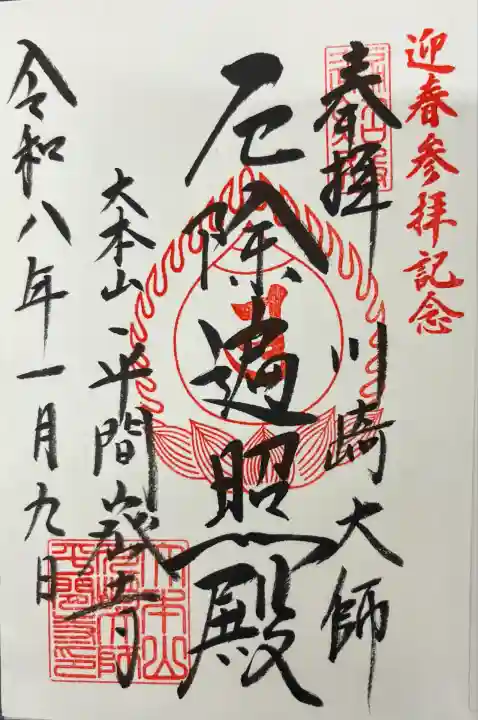 迎春参拝記念
奉拝
川崎大師
厄除遍照殿
大本山
平間寺
令和八年一月九日